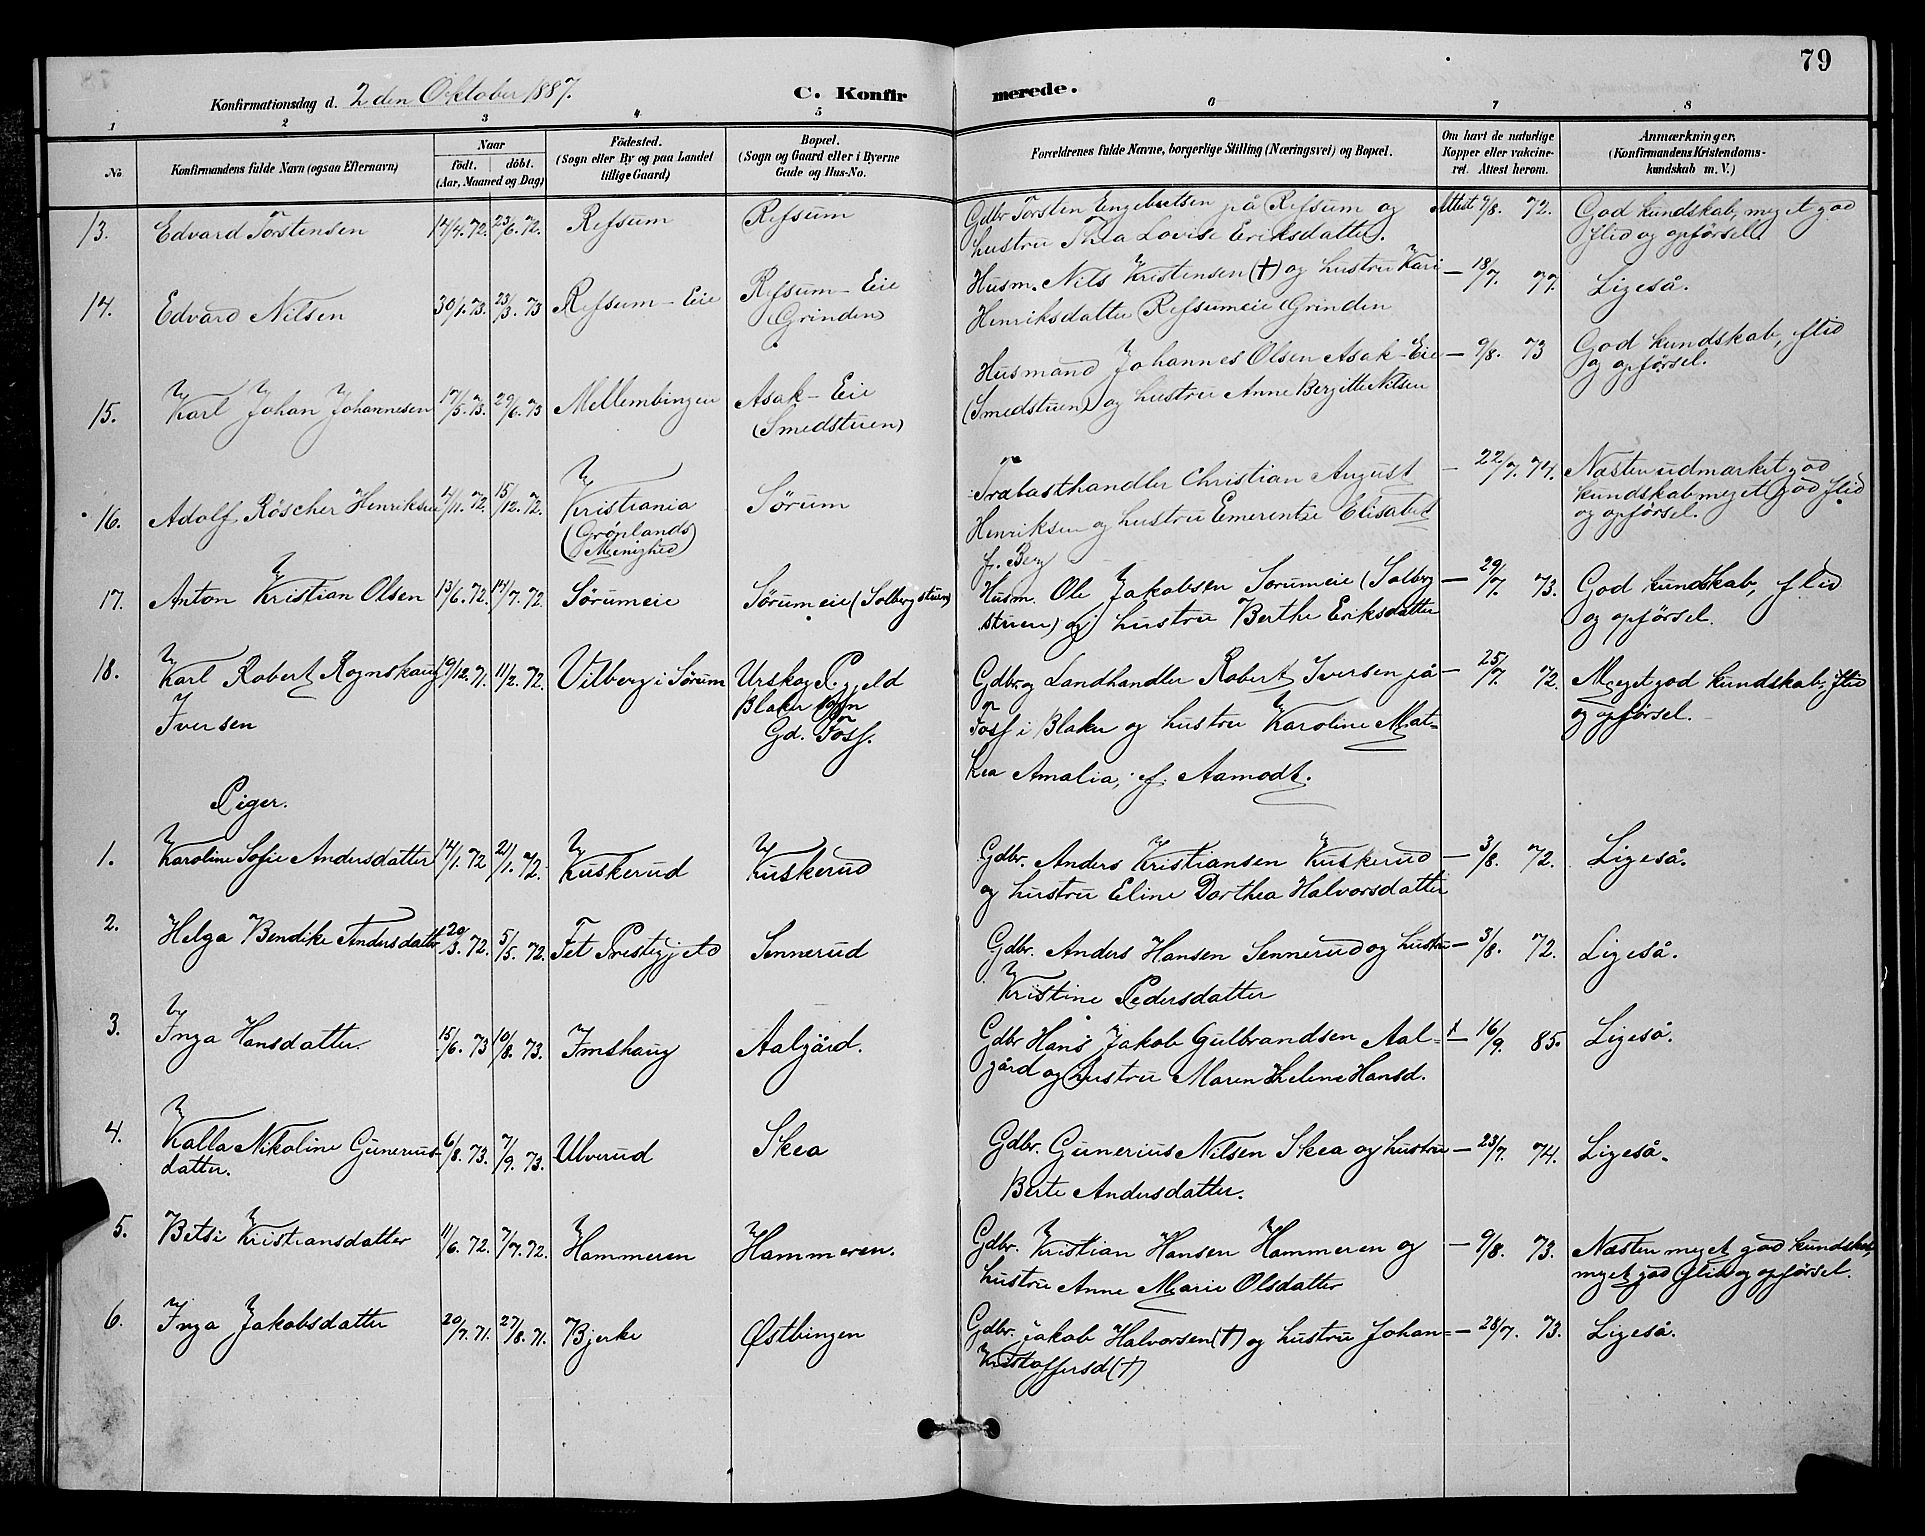 79
Konfirmationsdag d. 2 den Oktober 1887. C. Konfirmerede.
1 2 3 4 5 6 7 8
No. Konfirmandens fulde Navn (ogsaa Efternavn) Naar födt. döbt. (Aar, Maaned og Dag) Födested. (Sogn eller By og paa Landet tillige Gaard) Bopæl. (Sogn og Gaard eller i Byerne Gade og Hus-No. Forældrenes fulde Navne, borgerlige Stilling (Næringsvei) og Bopæl. Om havt de naturlige Kopper eller vakcineret. Attest herom. Anmærkninger, (Konfirmandens Kristendomskundskab m. V.)
13. Edvard Torstensen 14/4. 72. 23/6. 72. Refsum Refsum Gdbr Torsten Engebretsen på Refsum og Attest 9/8. 72. God kundskab, meget god
hustru Thea Lovise Eriksdatter. flid og opførsel.
14. Edvard Nilsen 30/1. 73. 23/3. 73 Refsum-Eie Refsum-Eie Husm. Nils Kristensen (†) og hustru Kari — 18/7. 77. Ligeså.
(Grinden) Henriksdatter Refsumeie Grinden
15. Karl Johan Johannesen 17/5. 73. 29/6. 73 Mellembingen Asak-Eie Husmand Johannes Olsen Asak-Eie — 9/8. 73 God kundskab, flid
(Smedstuen) (Smedstuen) og hustru Anne Bergitte Nilsen og opførsel.
16. Adolf Röscher Henriksen /11. 72. 15/12. 72. Kristiania Sørum Træbasthandler Christian August — 22/7. 74. Næsten udmærket god
(Grønlands Henriksen og hustru Emerentze Elisabet kundskab meget god flid
Menighed) f. Berg og opførsel.
17. Anton Kristian Olsen 13/6. 72. 14/7. 72. Sørumeie Sørumeie (Solbergstuen) Husm. Ole Jakobsen Sorumeie (Solberg — 29/7. 73. God kundskab, flid
stuen) og hustru Berthe Eriksdatter og opførsel.
18. Karl Robert Rognskaug 19/12. 71. 11/2. 72. Vilberg i Sørum Urskog P.gjeld Gdbr og Landhandler Robert Iversen på — 25/7. 72. Meget god kundskab, flid
Iversen Blaker sogn Foss i Blaker og hustru Karoline Mat- og opførsel.
Gd. Foss. hea Amalia, f. Aamodt.
Piger.
1. Karoline Sofie Andersdatter 14/1. 72 21/1. 72. Kuskerud Kuskerud Gdbr. Anders Kristiansen Kuskerud — 3/8. 72. Ligeså.
og hustru Eline Dorthea Halvorsdatter
2. Helga Bendike Andersdatter 20/3. 72. 5/5. 72. Fet Prestegjeld Sennerud Gdbr. Anders Hansen Sennerud og hustru — 3/8. 72. Ligeså.
Kristine Pedersdatter
3. Inga Hansdatter 15/6. 73 10/8. 73. Imshaug Aalgård. Gdbr Hans Jakob Gulbrandsen Aal- — 16/9. 85. Ligeså.
gård og hustru Maren Helene Hansd.
4. Kalla Nikoline Gunerius- 6/8. 73. 7/9. 73. Ulverud Skea Gdbr. Gunerius Nilsen Skea og hustru — 23/7. 74. Ligeså.
datter. Berte Andersdatter.
5. Betsi Kristiansdatter 11/6. 72. 7/7. 72. Hammeren Hammeren. Gdbr. Kristian Hansen Hammeren og — 9/8. 73. Næsten meget god kundskab,
hustru Anne Marie Olsdatter meget god flid og opførsel.
6. Inga Jakobsdatter 20/7. 71. 27/8. 71. Bjerke Østbingen Gdbr. Jakob Halvorsen (†) og hustru Johan= — 28/7. 73. Ligeså.
Kristoffersd (†)